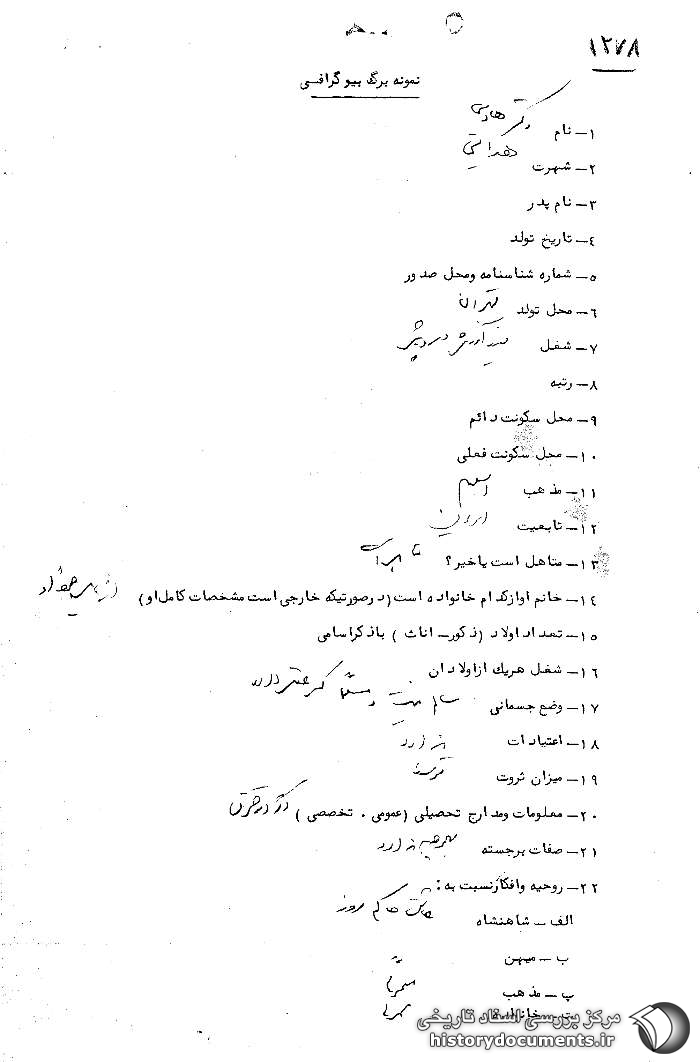 ۱۲۷۸
نمونه برگ بیوگرافی
۱ــ نام دکتر هادی
۲ــ شهرت هدایتی
۳ــ نام پدر
۴ــ تاریخ تولد
۵ــ شماره شناسنامه ومحل صدور
۶ــ محل تولد تهران
۷ــ شغل
۸ــ رتبه
۹ــ محل سکونت دائم
۱۰ــ محل سکونت فعلی
۱۱ــ مذهب اسلام
۱۲ــ تابعیت ایران
۱۳ــ متاهل است یاخیر؟
۱۴ــ خانم اوازکدام خانواده است (درصورتیکه خارجی است مشخصات کامل او)
۱۵ــ تعداد اولاد (ذکورــ اناث) باذکراسامی
۱۶ــ شغل هریك ازاولادان
۱۷ــ وضع جسمانی سالم
۱۸ــ اعتیادات ندارد
۱۹ــ میزان ثروت
۲۰ــ معلومات ومدارج تحصیلی (عمومی . تخصصی) دکتر در حقوق
۲۱ــ صفات برجسته ندارد
۲۲ــ روحیه وافکارنسبت به :
الف ــ شاهنشاه
ب ــ میهن
پ ــ مذهب
مرکز بررسی اسناد تاریخی
historydocuments.ir